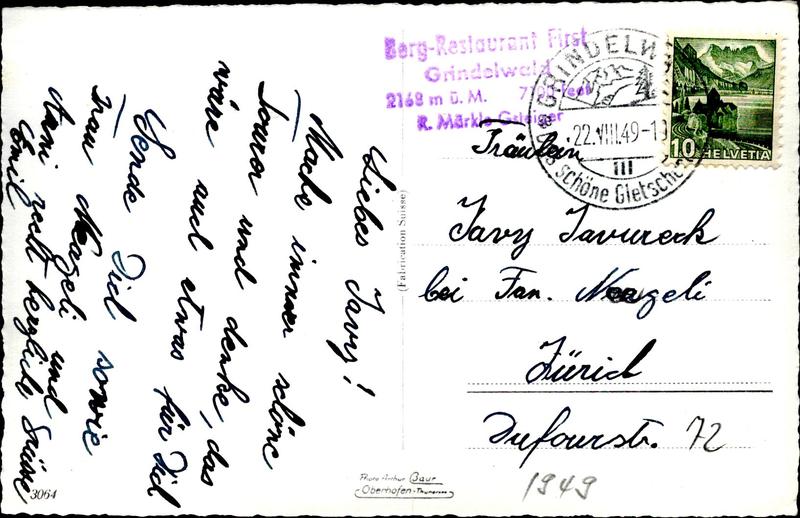 Liebes Javy!
Mache immer schöne
Touren und denke, das
wäre auch etwas für Dich
Sende Dir sowie
Frau Naegeli und
Anni recht herzliche Grüsse
Emil
3064
(Fabrication Suisse)
Photo Arthur Baur
Oberhofen-Thunersee
Berg-Restaurant First
Grindelwald
2168 m ü. M. 7100 feet
R. Märkle-Gsteiger
GRINDELWALD
22.VIII.49-1
III
schöne Gletscher
10 HELVETIA
Fräulein
Javy Javureck
bei Fam. Naegeli
Zürich
Dufourstr. 72
1949